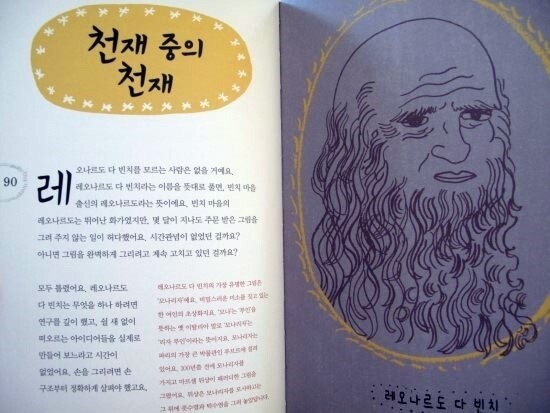 천재 중의
천재
90
레오나르도 다 빈치를 모르는 사람은 없을 거예요.
레오나르도 다 빈치라는 이름을 뜻대로 풀면, 빈치 마을
출신의 레오나르도라는 뜻이에요. 빈치 마을의
레오나르도는 뛰어난 화가였지만, 몇 달이 지나도 주문 받은 그림을
그려 주지 않는 일이 허다했어요. 시간관념이 없었던 걸까요?
아니면 그림을 완벽하게 그리려고 계속 고치고 있던 걸까요?
모두 틀렸어요. 레오나르도
다 빈치는 무엇을 하나 하려면
연구를 깊이 했고, 쉴 새 없이
떠오르는 아이디어들을 실제로
만들어 보느라고 시간이
없었어요. 손을 그리려면 손
구조부터 정확하게 살펴야 했고요,
레오나르도 다 빈치의 가장 유명한 그림은
'모나리자'예요. 비밀스러운 미소를 짓고 있는
한 여인의 초상화지요. '모나'는 '부인'을
뜻하는 옛 이탈리아 말로 '모나리자'는
'리자 부인'이라는 뜻이지요. 모나리자는
파리의 가장 큰 박물관인 루브르에 걸려
있어요. 100년쯤 전에 모나리자를
가지고 마르셀 뒤샹이 패러디한 그림을
그렸어요. 뒤샹은 모나리자를 모사하고는
그 위에 콧수염과 턱수염을 그려 놓았답니다.
레오나르도 다 빈치